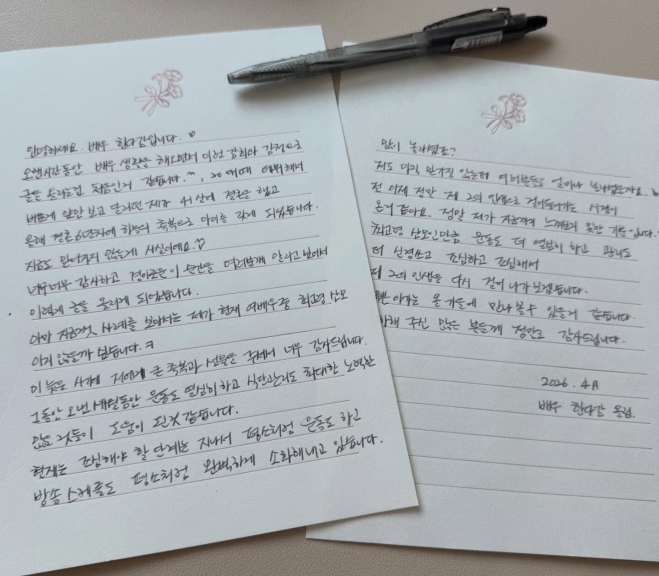 안녕하세요. 배우 한다감입니다. ♡
오랜시간동안 배우 생활을 해오면서 이런 감회와 감정으로
글을 올리는건 처음인거 같습니다.^^, 20대때 데뷔해서
바쁘게 일만 보고 달리던 제가 41살에 결혼을 했고
올해 결혼 6년차에 하늘의 축복으로 아이를 갖게 되었습니다.
지금도 믿어지지 않는게 사실이에요.
너무너무 감사하고 경이로운 이 순간을 여러분께 알리고 남겨서
이렇게 글을 올리게 되었습니다.
아마 지금껏 사례를 보아서는 제가 현재 여배우중 최고령 산모
이지 않을까 싶습니다. ㅋ
이 늦은 시기에 저에게 큰 축복과 선물을 주셔서 너무 감사드립니다.
그동안 오랜 세월동안 운동도 열심히 하고 식단관리도 최대한 노력한
많은 것들이 도움이 된것 같습니다.
현재는 조심해야 할 단계는 지나서 평소처럼 운동도 하고
방송 스케줄도 평소처럼 완벽하게 소화해내고 있습니다.
많이 놀라셨죠?
저도 아직 안 믿기는데 여러분들은 얼마나 놀라셨을까요.
전 이제 정말 제 2의 인생으로 걸어들어가는 시점이
온거 같아요. 정말 제가 지금까지 느껴보지 못한 기분입니다.
최고령 산모인만큼 운동도 더 열심히 하고 관리도
더 신경쓰고 조심하고 조심해서
제 2의 인생을 다시 걸어 나가보겠습니다.
아가는 올 가을에 만나볼수 있을거 같습니다.
해 주신 많은 분들께 정말로 감사드립니다.
2026. 4月
배우 한다감 올림.